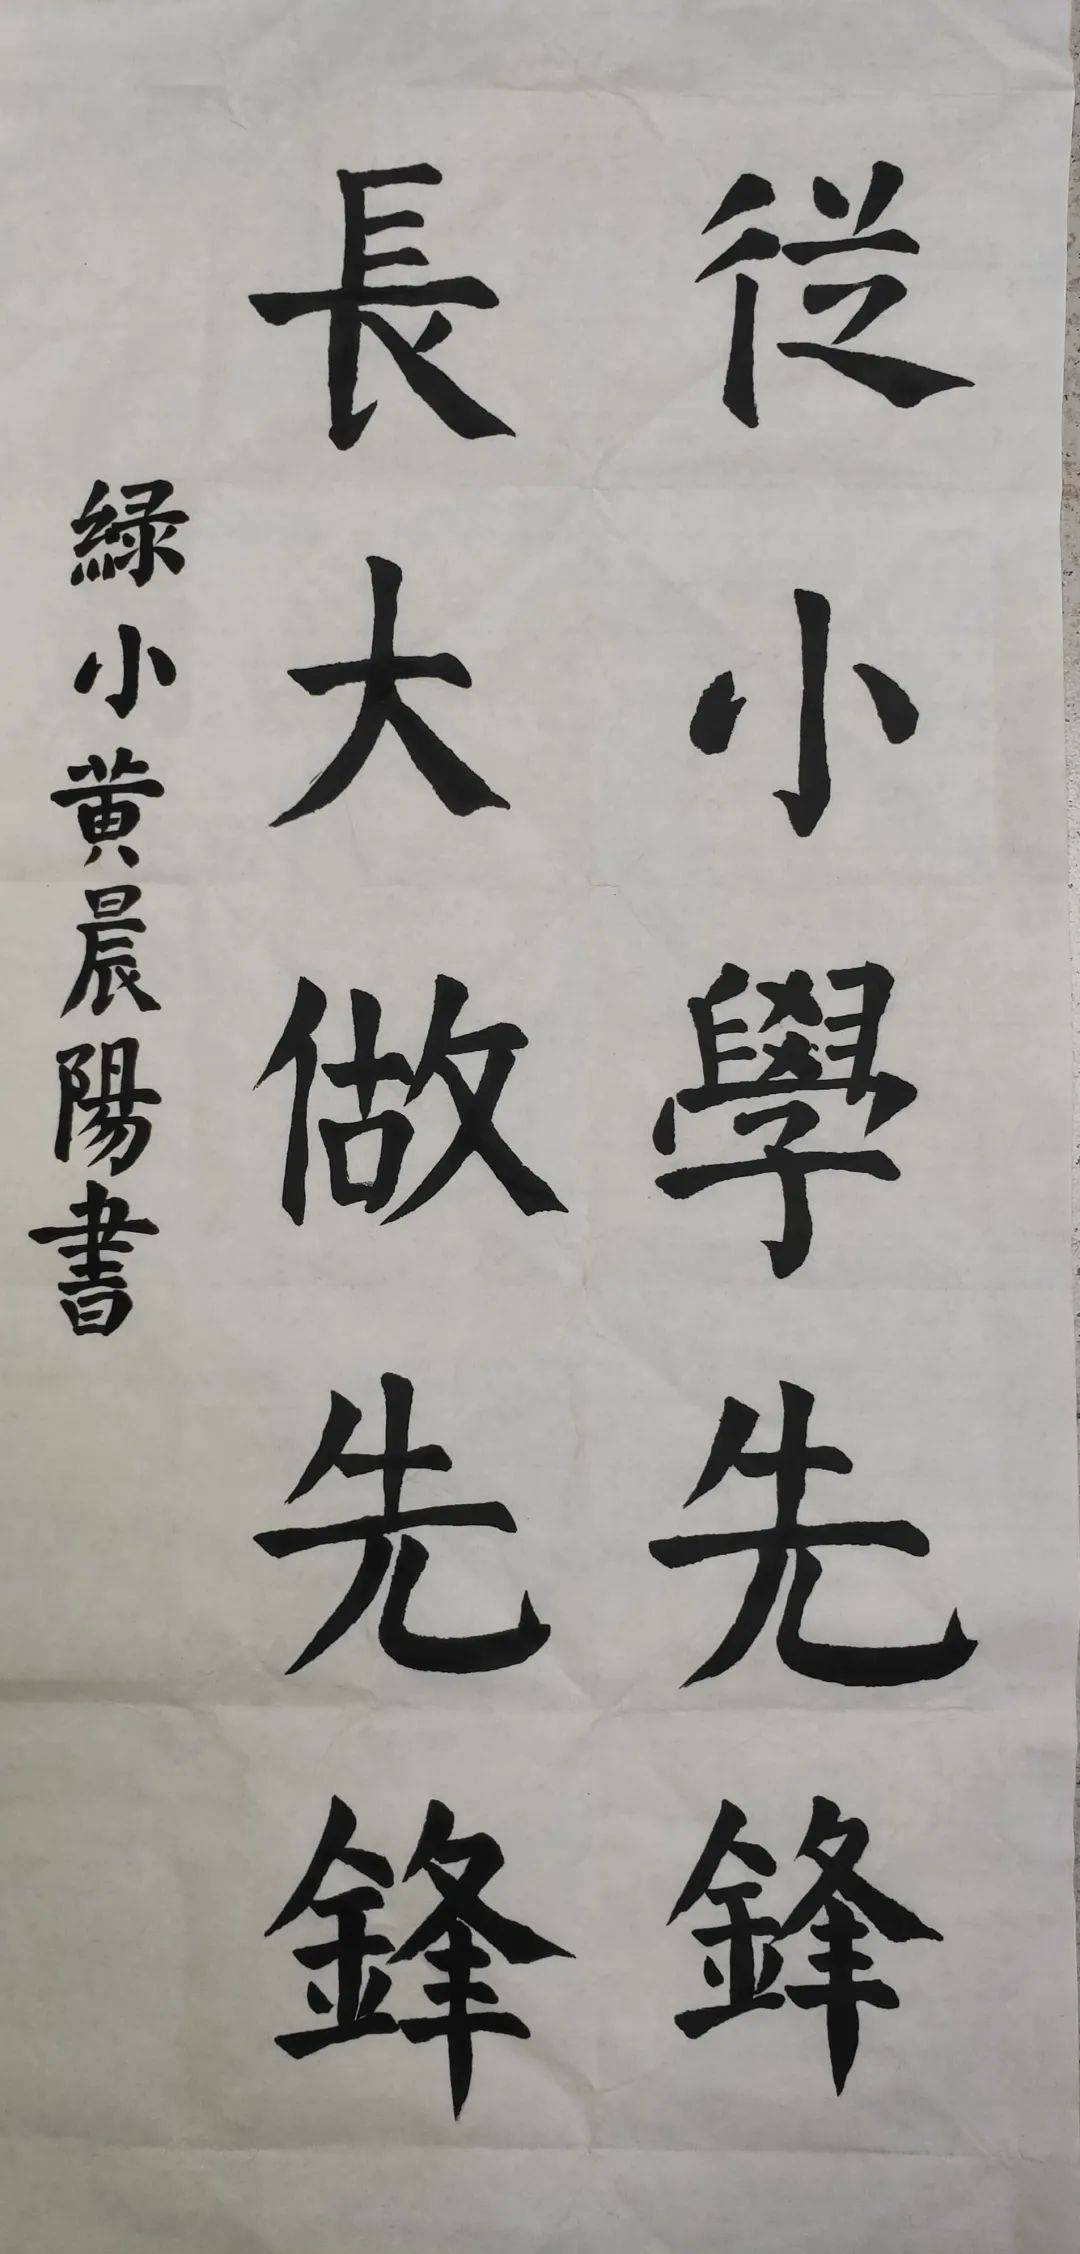 從小學先鋒
長大做先鋒
緑小黄晨陽書